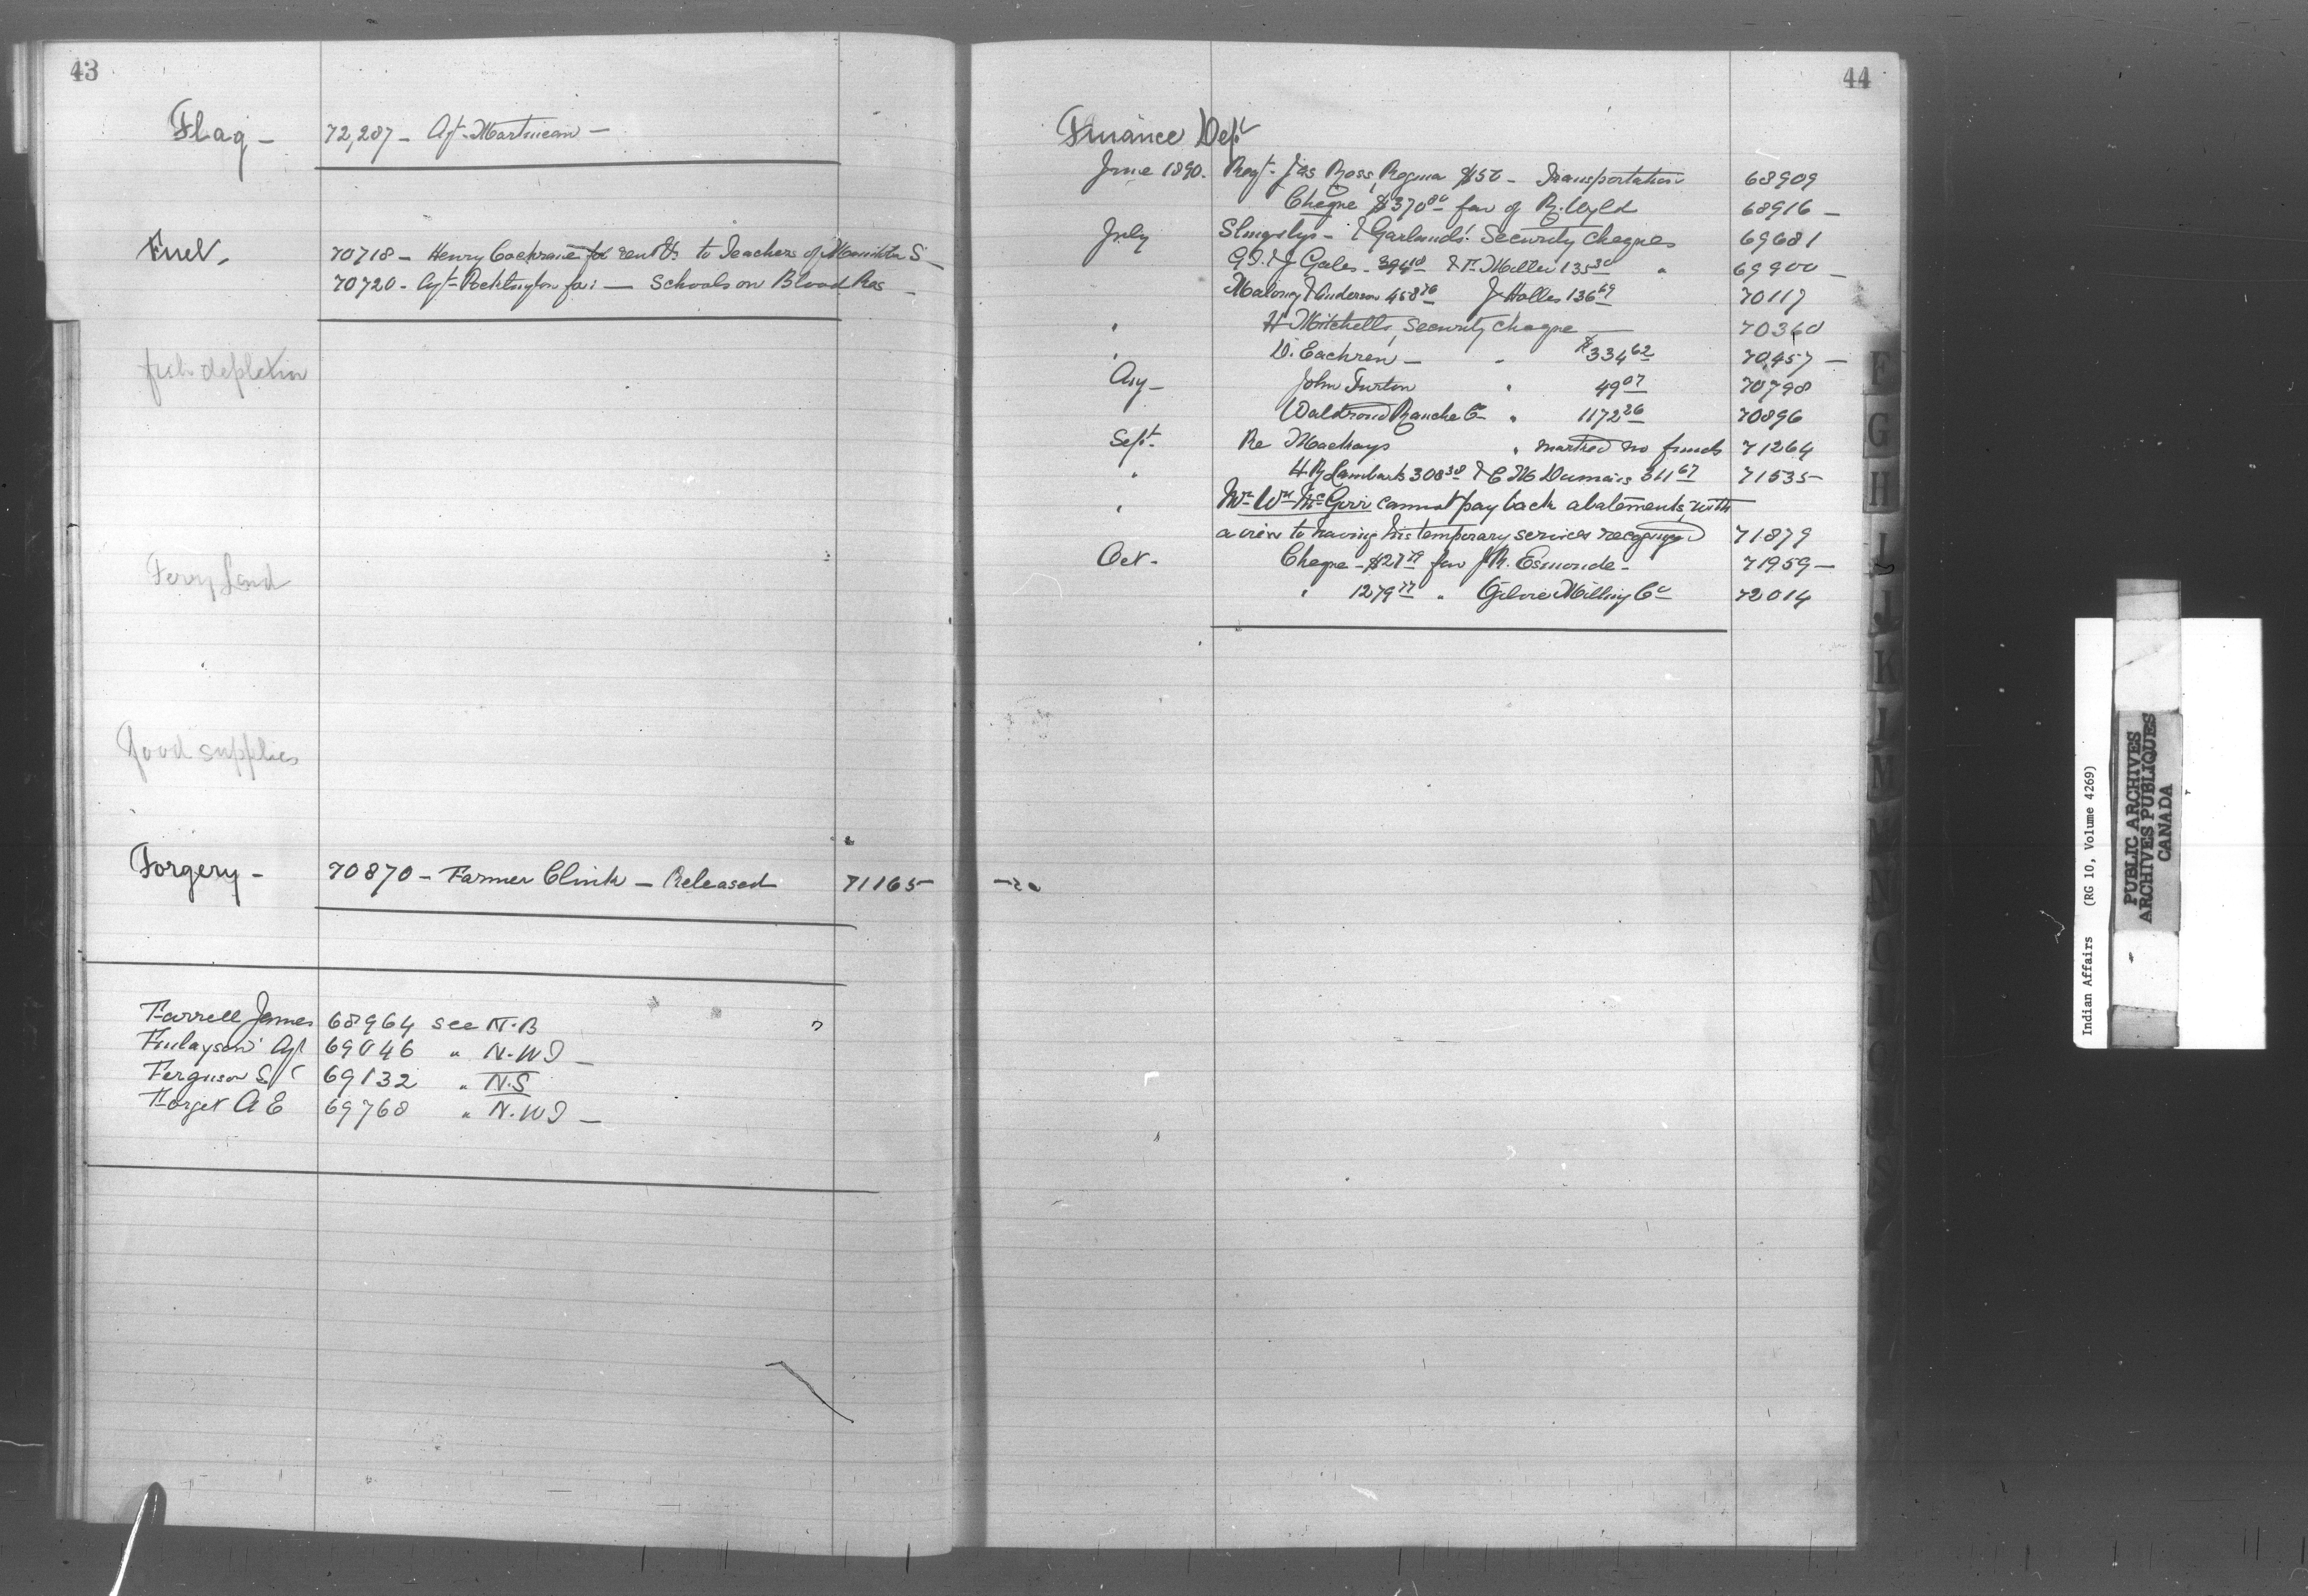 43
Flag - 72,287 - Agt. Martineau -
Fuel, 70718 - Henry Cochrane for to Teachers of S
70720 - Agt. Pocklington for : - Schools on Blood Res -
fish depletion
Ferry Land
Food supplies
Forgery - 70870 - Farmer Clink - Released 71165 -
Farrell James 68964 see N.B
Finlayson Agt 69046 " N.W.T -
Ferguson S 69132 " N.S
Forget A E 69768 " N.W.T -
44
Finance Dept
June 1890. Jas Ross, Regina - Transportation 68909
Cheque $370 80 fav of R. Wyld 68916 -
July Slingsbys - & Garlands' Security Cheques 69681
Gales - 394 18 & Miller 135 30 " 69900 -
Malony & Anderson 458 76 J Holles 136 69 70117
" H Mitchells, Security Cheque 70360
" D. Eachren - " $334 62 70,457 -
Aug - John Turton " 49 07 70798
Waldrond Ranche Co " 1172 26 70896
Sept. Re Mackays " marked no funds 71264
" H R Lambarts 308 38 & C M Dumais 311 67 71535 -
" Mr Wm McGirr cannot pay back abatements, with
a view to having his temporary services recognized 71879
Oct - Cheque - $27 79 fav J R. Esmonde - 71959 -
" 1279 77 " Ogilvie Milling Co 72014
E
G
H
I
J
K
L
M
N
O
Indian Affairs (RG 10, Volume 4269)
PUBLIC ARCHIVES
ARCHIVES PUBLIQUES
CANADA